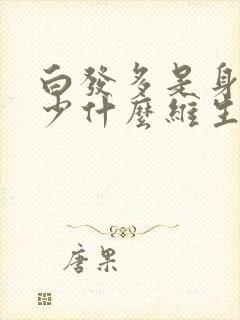 白發多是身
少什麼維生
唐果